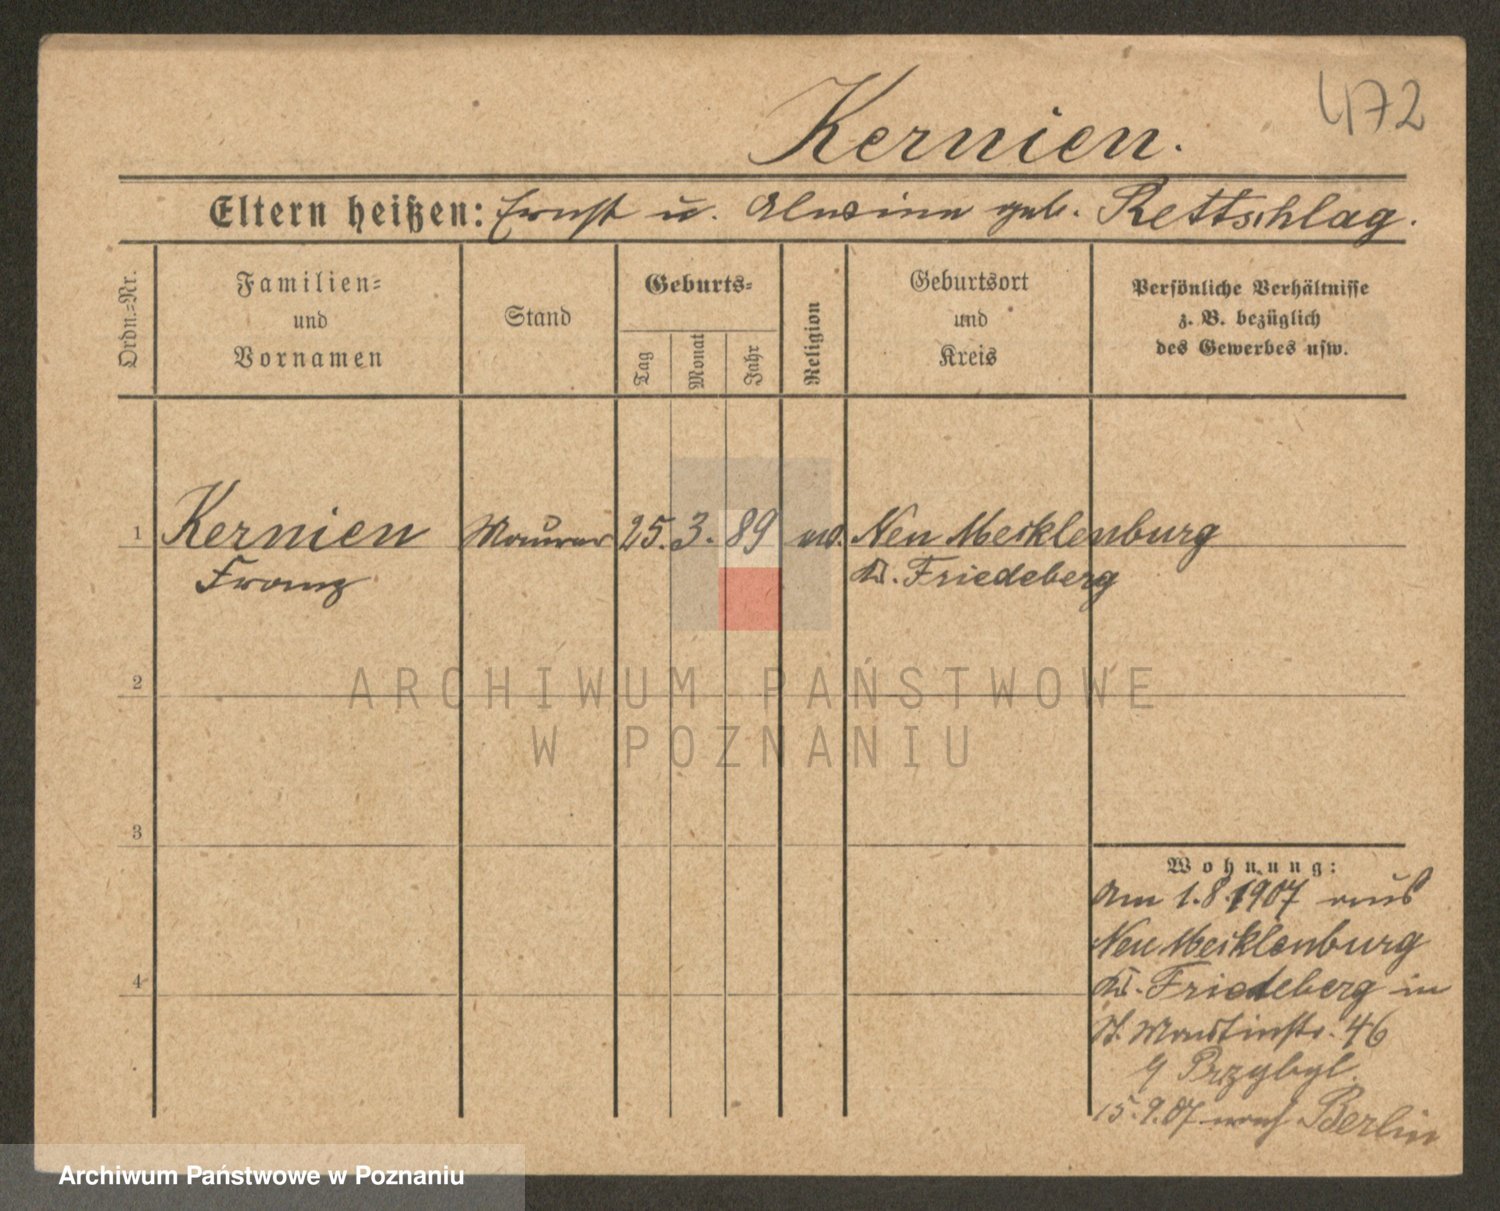 472
Kernien.
Eltern heißen: Ernst u. Alwine geb. Rettschlag.
Ordn.=Nr.
Familien=
und
Vornamen
Stand
Geburts=
Tag
Monat
Jahr
Religion
Geburtsort
und
Kreis
Persönliche Verhältnisse
z. B. bezüglich
des Gewerbes usw.
1 Kernien Maurer 25. 3. 89 Neu Mecklenburg
Franz Kr. Friedeberg
2
3
4
Wohnung:
Am 1.8.1907 aus
Neu Mecklenburg
Kr. Friedeberg in
St. Martinstr. 46
Przybyl.
15.9.07 nach Berlin
ARCHIWUM PAŃSTWOWE
W POZNANIU
Archiwum Państwowe w Poznaniu